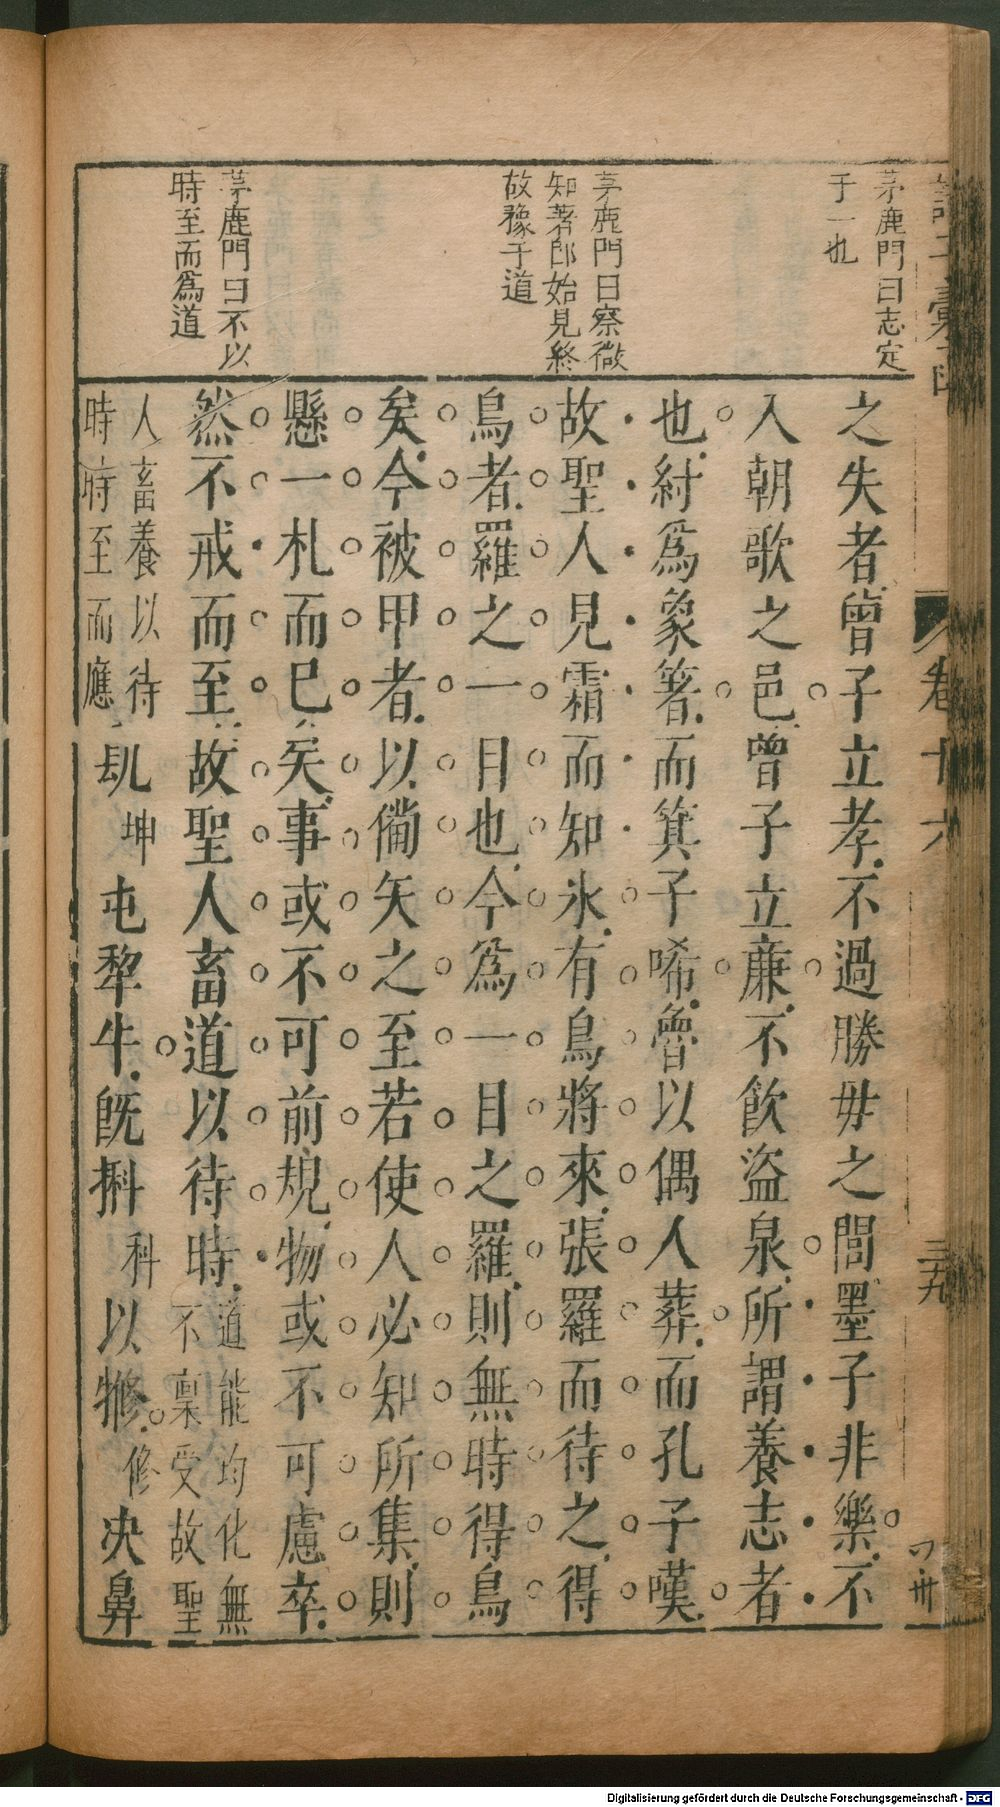 茅鹿門曰志定
于一也
茅鹿門曰察微
知著即始見終
故豫于道
茅鹿門曰不以
時至而爲道
之失者曾子立孝不過勝毋之閭墨子非樂不
入朝歌之邑曾子立亷不飲盜泉所謂養志者
也紂爲象箸而箕子唏魯以偶人葬而孔子嘆
故聖人見霜而知氷有鳥將來張羅而待之得
鳥者羅之一目也今爲一目之羅則無時得鳥
矣今被甲者以備矢之至若使人必知所集則
懸一札而已矣事或不可前規物或不可慮卒
然不戒而至故聖人畜道以待時道能均化無
不禀受故聖
人畜養以待
時時至而應
坤屯犂牛既㧁科以㹋修决鼻
卷十六
三十九